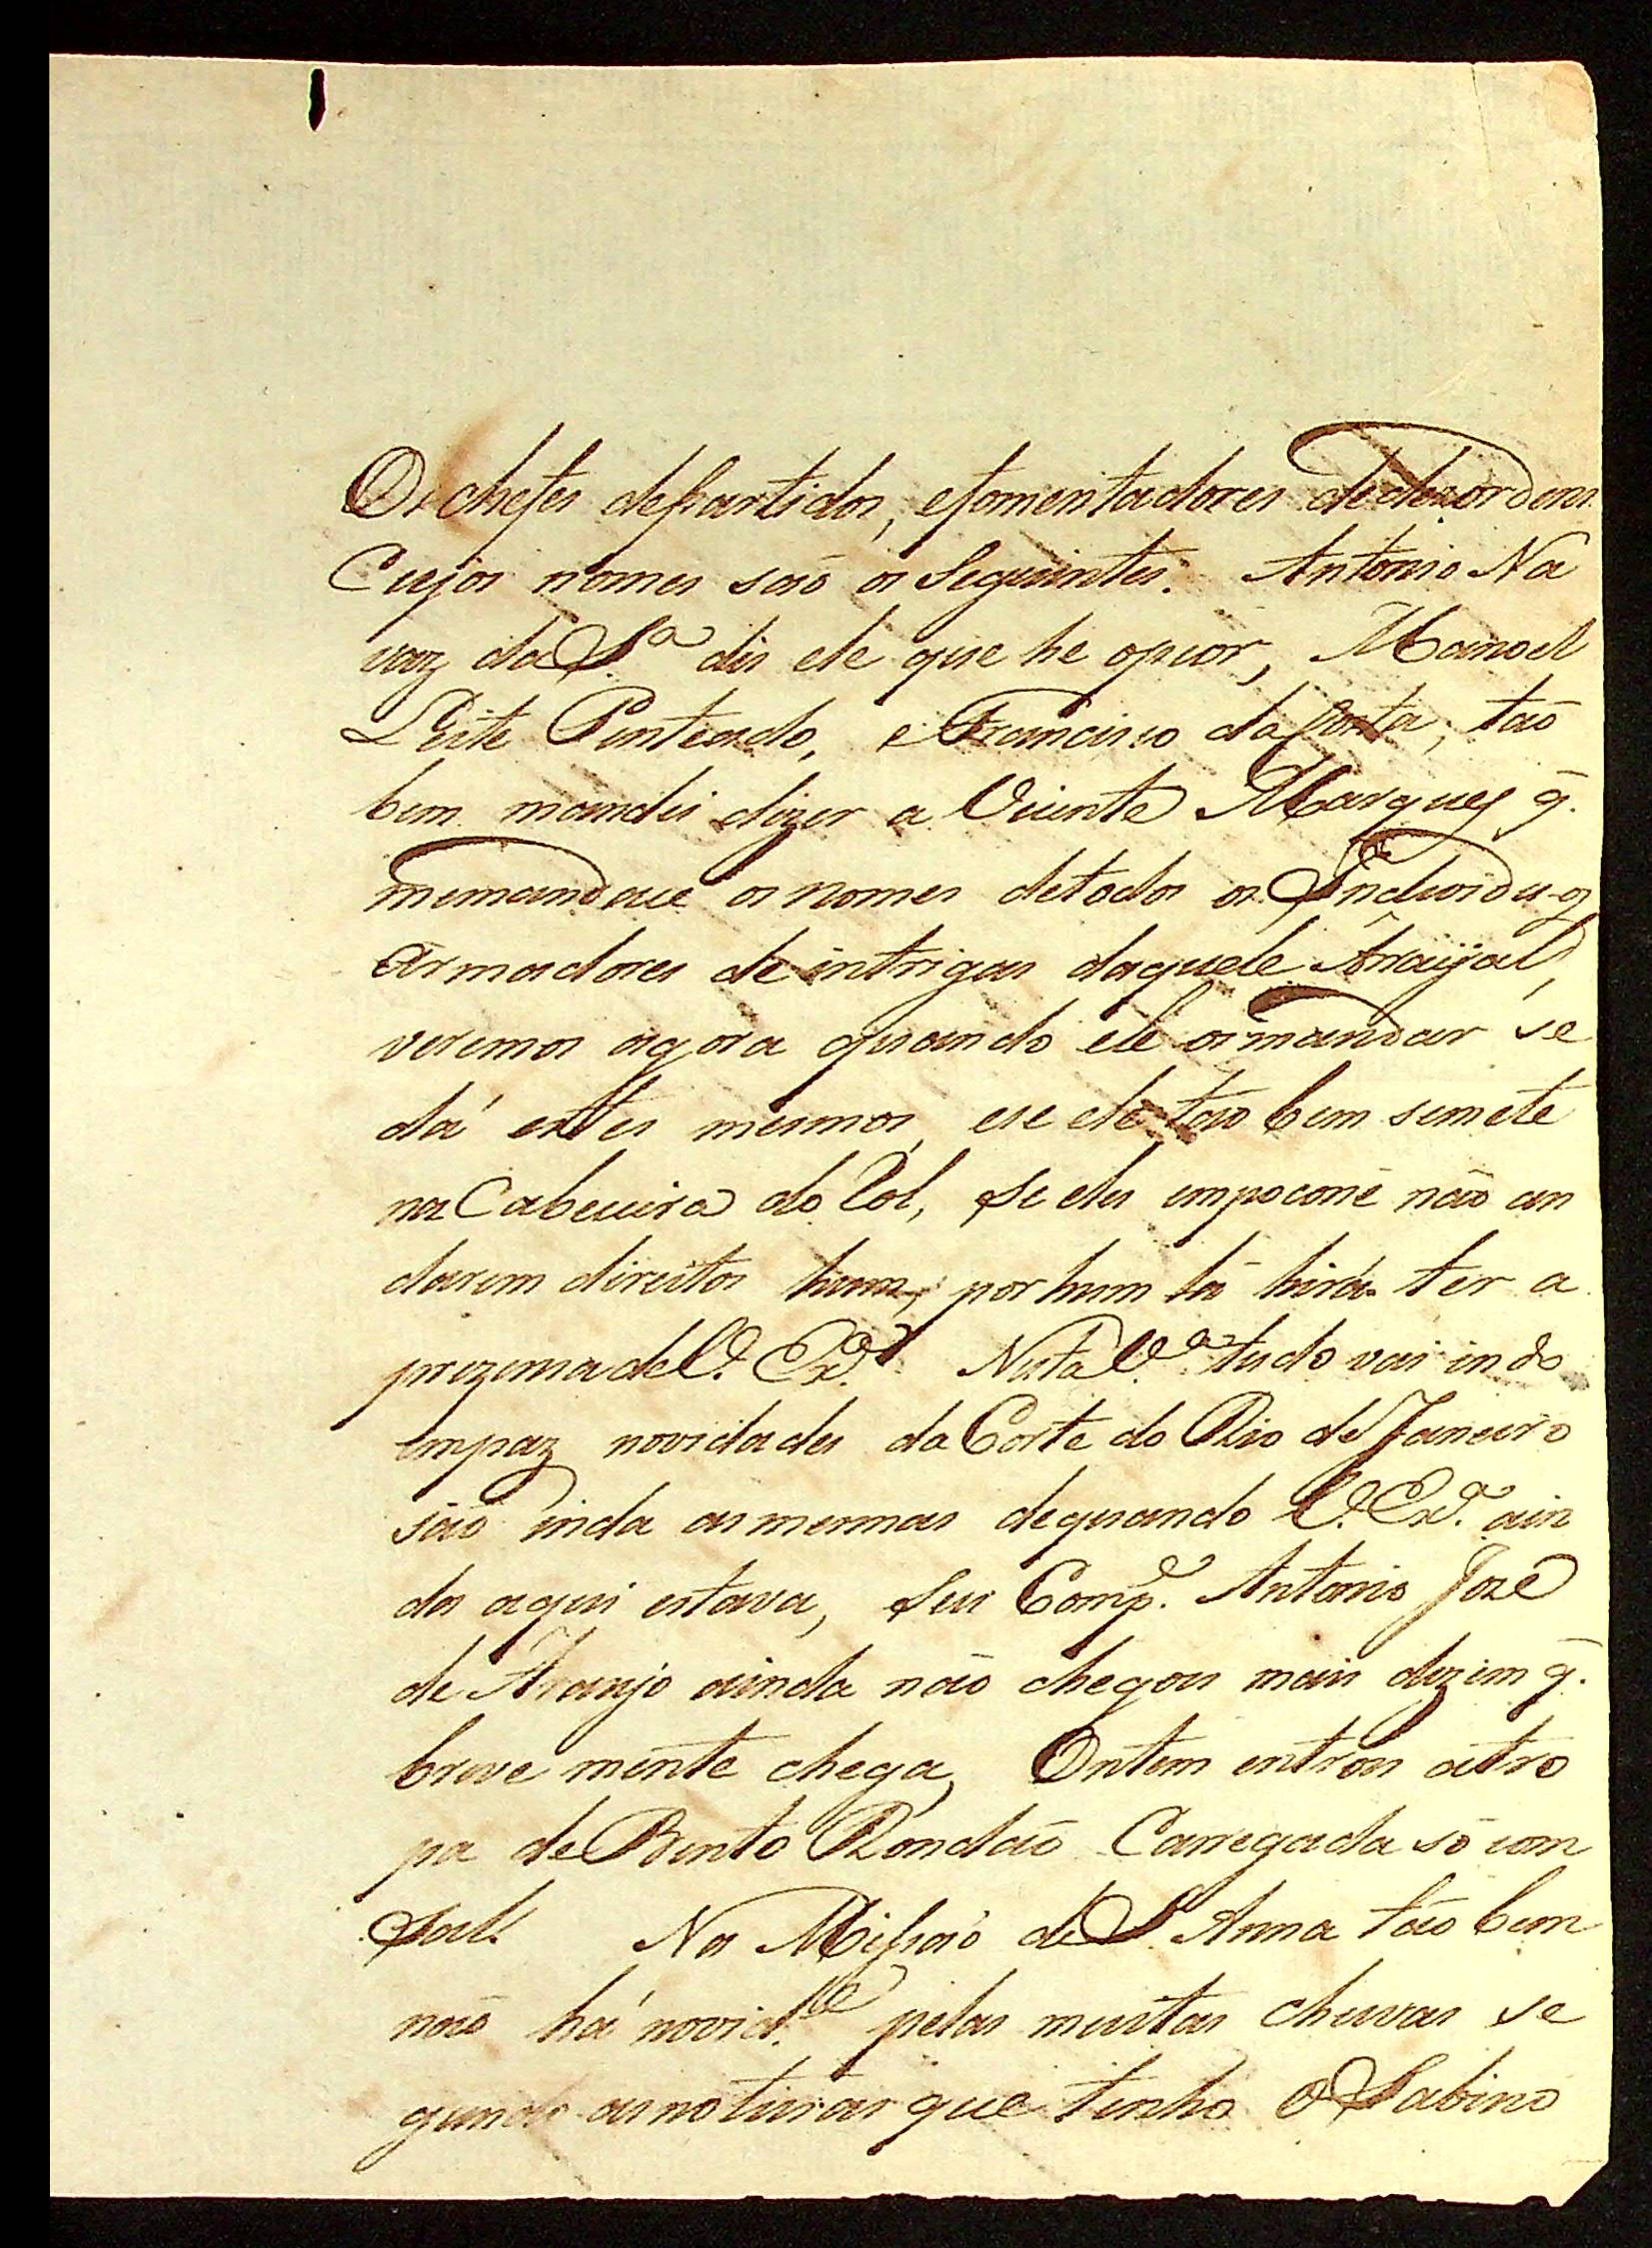 Os chefes departidos, efomentadores dedezordens
Cujos nomes saõ os Seguintes. Antonio Na
vaz da S.ª dis ele que he opior, Manoel
Leite Penteado, e Francisco da Costa, taõ
bem mandei dizer a Vicente Marques q̃.
memandace os nomes detodos os Individuos
Armadores de intrigas daquele Arayal,
veremos agora quando ele osmandar se
dá estes mesmos, ese ele taõ bem semete
na Cabeceira do Rol, Se eles empoconé naõ an
darem direitos hum, por hum lá hirá ter a
prezencadeV. Ex.ª Nesta V.ª tudo vai indo
empaz novidades da Corte do Rio de Janeiro
saõ inda asmesmas dequando V. Ex.ª ain
da aqui estava, Seu Comp.e Antonio Joze
de Araujo ainda naõ chegou mais dizem q̃.
breve mente chega, Ontem entrou atro
pa de Bento Rondaõ Carregada só com
Sal. Na Missaõ de S. Anna taõ bem
naõ há novid.e pelas muitas chuvas se
gundo asnoticias que tenho O Sabino